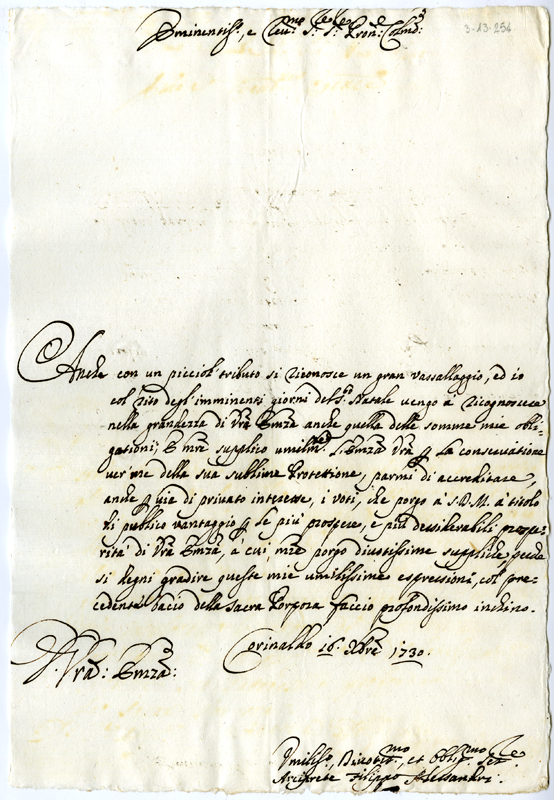 Eminentiss.º, e Reu.mo S.re S.re Pron: Colmo:
3-13-254
Anche con un picciol tributo si riconosce un gran vassallaggio, ed io
col rito degl'imminenti giorni del S.º Natale vengo à ricognoscere
nella grandezza di Vrã Emzã anche quella delle somme mie obli-
gationi; E mẽre supplico umilm.te l'Emzã Vrã p la conseruatione
uer' me della sua sublime Protettione, parmi di accreditare,
anche p uia di priuato interesse, i voti, che porgo à S.D.M. à titolo
di publico vantaggio p le più prospere, e più desiderabili prospe-
rità di Vrã Emzã, à cui, mẽre porgo diuotissime suppliche, perche
si degni gradire queste mie umilissime espressioni, col pre-
cedente bacio della Sacra Porpora faccio profondissimo inchino.
Corinaldo 16. Xbre 1730.
D. Vrã: Emzã:
Vmiliss.º, Diuotis.mo, et Obblig.mo Ser.re
Arciprete Filippo Alessandri.